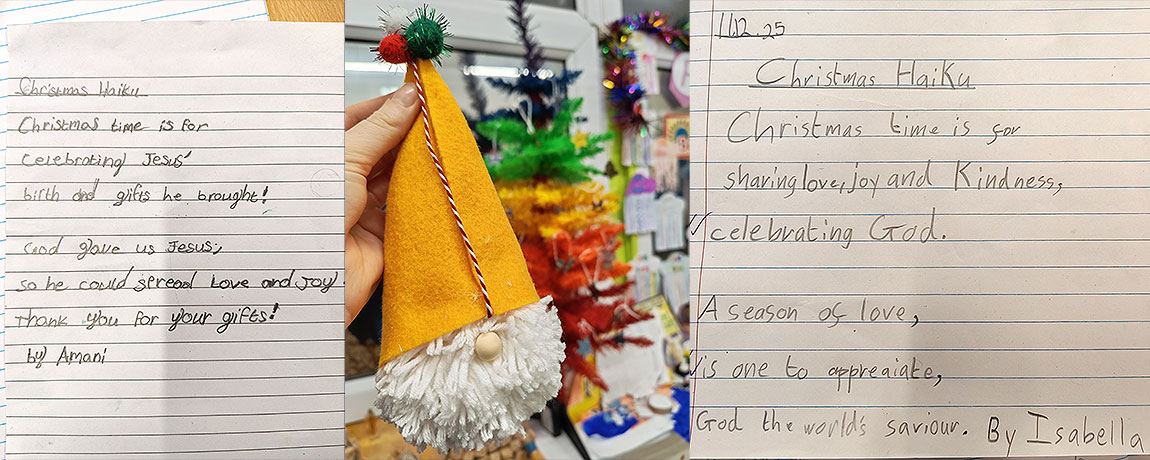 Christmas Haiku
Christmas time is for
Celebrating Jesus'
birth and gifts he brought!
God gave us Jesus,
so he could spread Love and Joy.
Thank you for your gifts!
by Amani
11.12.25
Christmas Haiku
Christmas time is for
sharing love, joy and Kindness,
celebrating God.
A season of love,
is one to appreaiate,
God the world's saviour. By Isabella